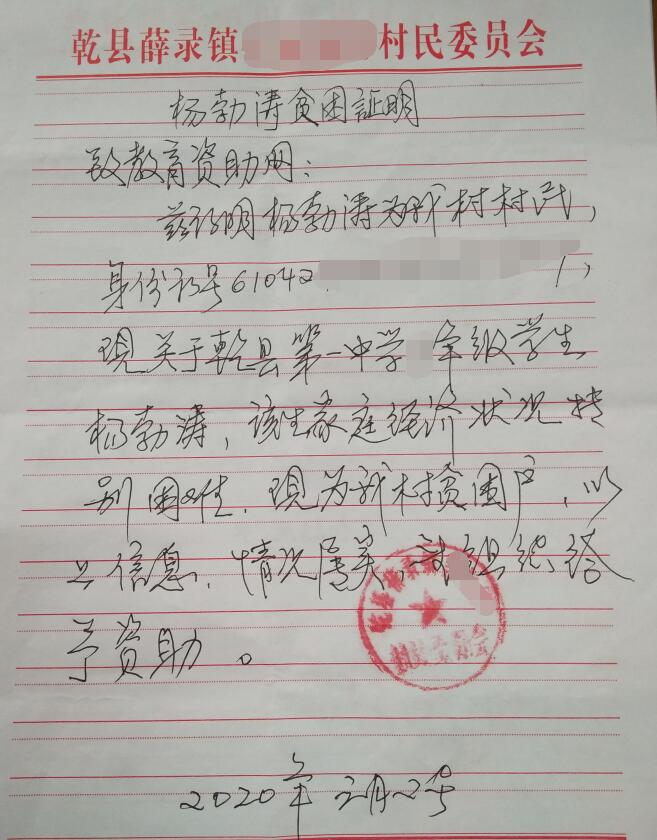 乾县薛录镇 村民委员会
杨勃涛贫困証明
致教育资助网:
兹证明杨勃涛为我村村民,
身份证号61042
现关于乾县第一中学 年级学生
杨勃涛,该生家庭经济状况特
别困难,现为我村贫困户,以
上信息,情况属实,望组织给
予资助。
乾县薛录
村民委员会
2020年 2号